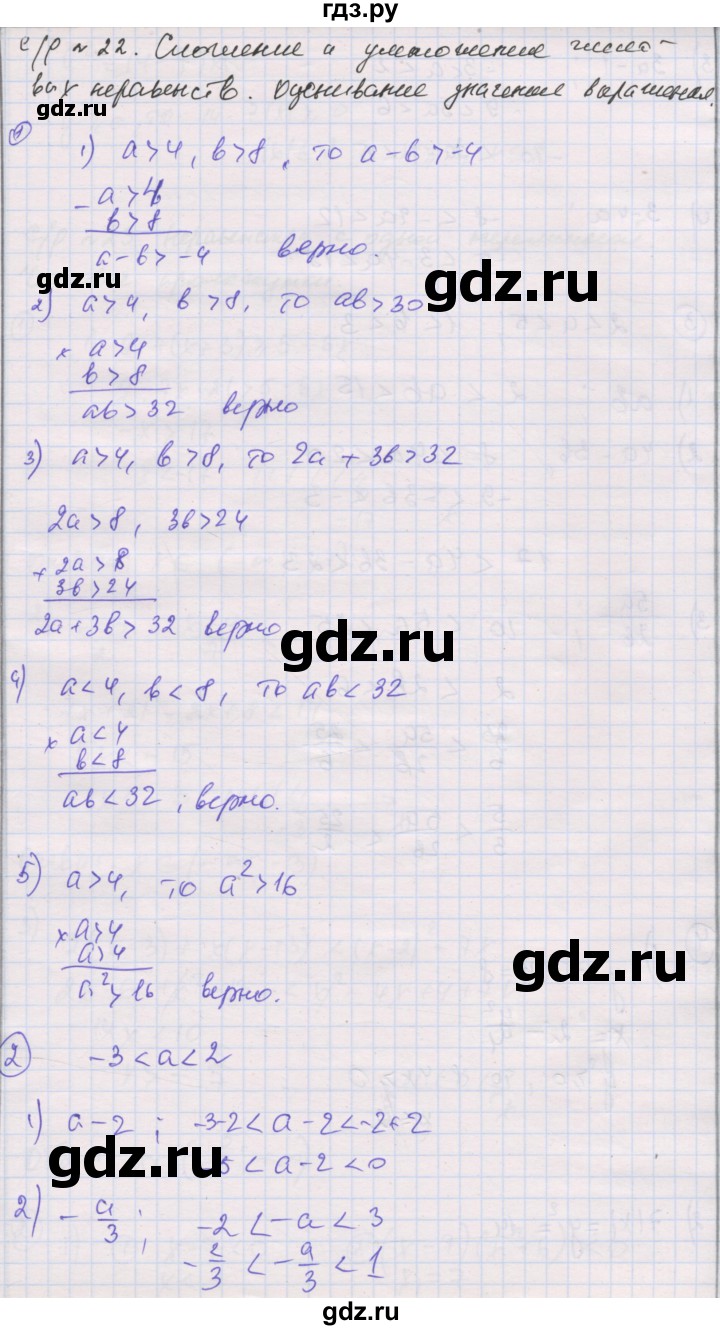 гдз.ру
с/р № 22. Сложение и умножение число-
вых неравенств. Оценивание значения выражения.
1
1) a>4, b>8, то a-b>-4
- a>4
b>8
a-b>-4 верно.
2) a>4, b>8, то ab>30
× a>4
b>8
ab>32 верно
3) a>4, b>8, то 2a+3b>32
2a>8, 3b>24
+ 2a>8
3b>24
2a+3b>32 верно
4) a<4, b<8, то ab<32
× a<4
b<8
ab<32, верно.
5) a>4, то a²>16
× a>4
a>4
a²>16 верно.
2 -3<a<2
1) a-2; -3-2<a-2<-2+2
-5<a-2<0
2) -a/3; -2<-a<3
-2/3<-a/3<1
gdz.ru
gdz.ru
gdz.ru
gdz.ru
gdz.ru
gdz.ru
gdz.ru
гдз.ру